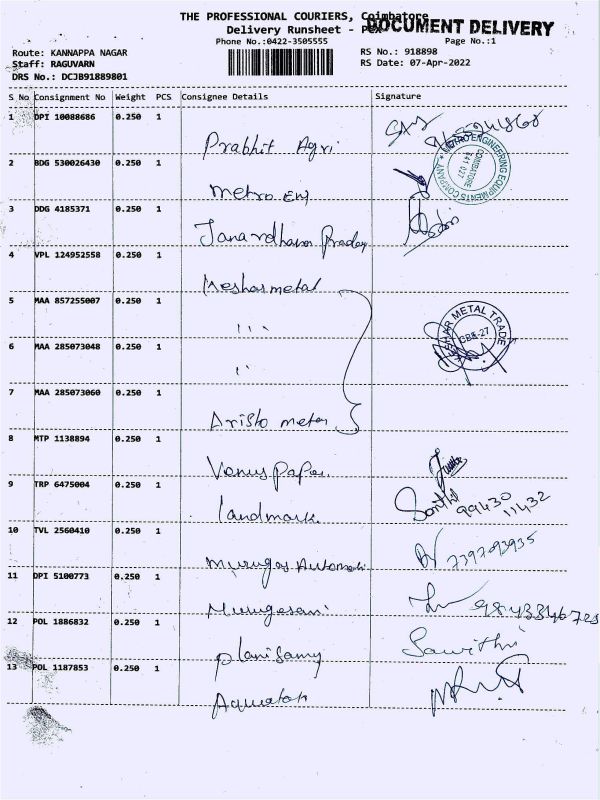 THE PROFESSIONAL COURIERS, Coimbatore
DOCUMENT DELIVERY
Delivery Runsheet -
Phone No.:0422-3505555
Page No.:1
Route: KANNAPPA NAGAR
RS No.: 918898
Staff: RAGUVARN
RS Date: 07-Apr-2022
DRS No.: DCJB91889801
S No Consignment No Weight PCS Consignee Details Signature
1 DPI 10088686 0.250 1
Prabhit Agri
2 BDG 530026430 0.250 1
Metro Enj
METRO ENGINEERING EQUIPMENTS COMPANY
COIMBATORE
641 027
3 DDG 4185371 0.250 1
Janardhanan Pradey
4 VPL 124952558 0.250 1
Keshar metal
5 MAA 857255007 0.250 1
KESHAR METAL TRADE
CBE-27
6 MAA 285073048 0.250 1
7 MAA 285073060 0.250 1
Aristo metar
8 MTP 1138894 0.250 1
Venus Papar
9 TRP 6475004 0.250 1
Landmark
99430
11432
10 TVL 2560410 0.250 1
Murugas Automati
7397093935
11 DPI 5100773 0.250 1
Murugesan
12 POL 1886832 0.250 1
Planisamy
Sawithri
13 POL 1187853 0.250 1
Aquatak